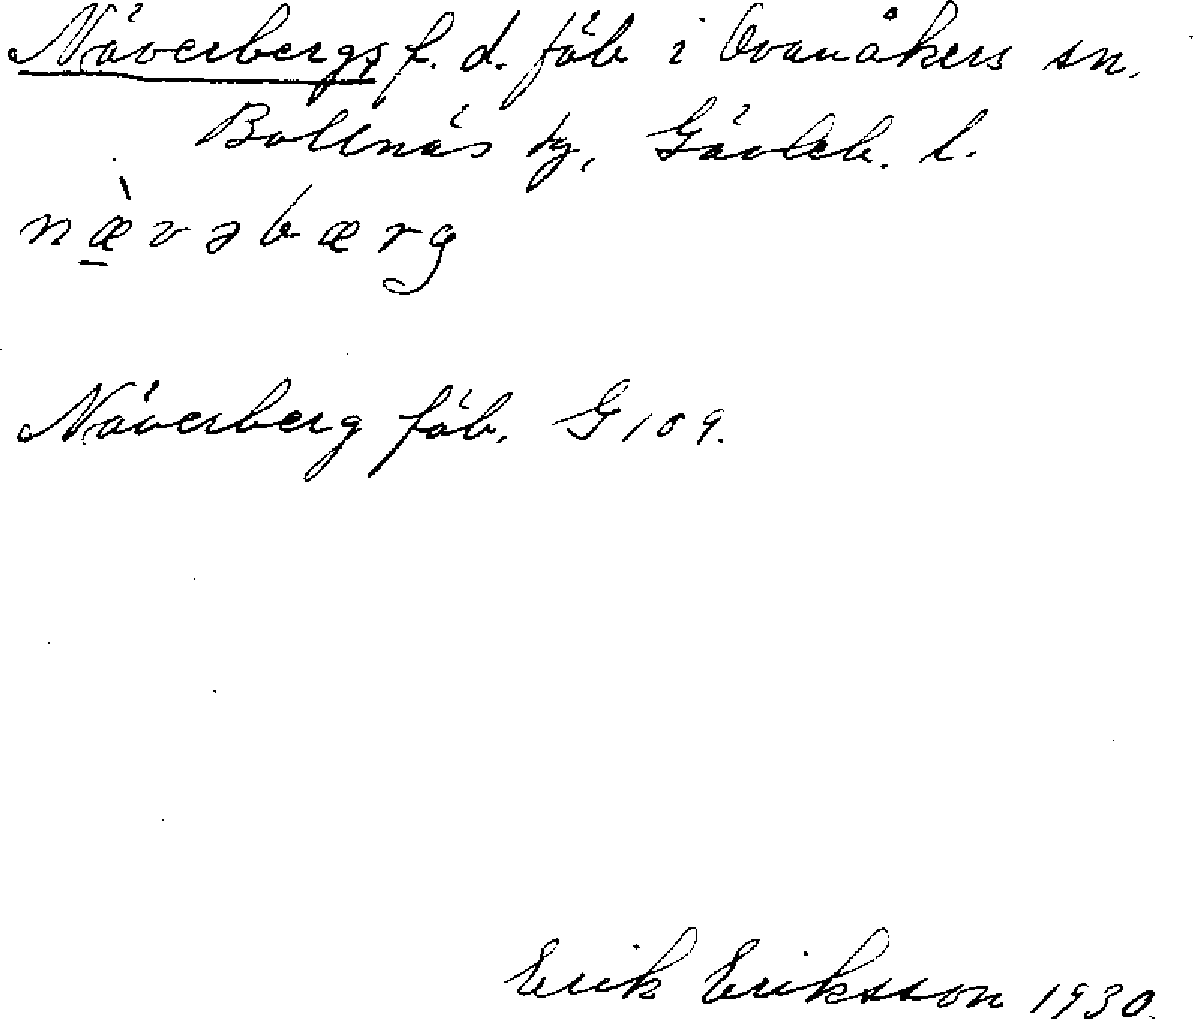 Näverbergs f. d. fäb i Ovanåkers sn.
Bollnäs tg, Gävleb. l.
næ̀vəbærg
Näverberg fäb. G 109.
Erik Eriksson 1930.